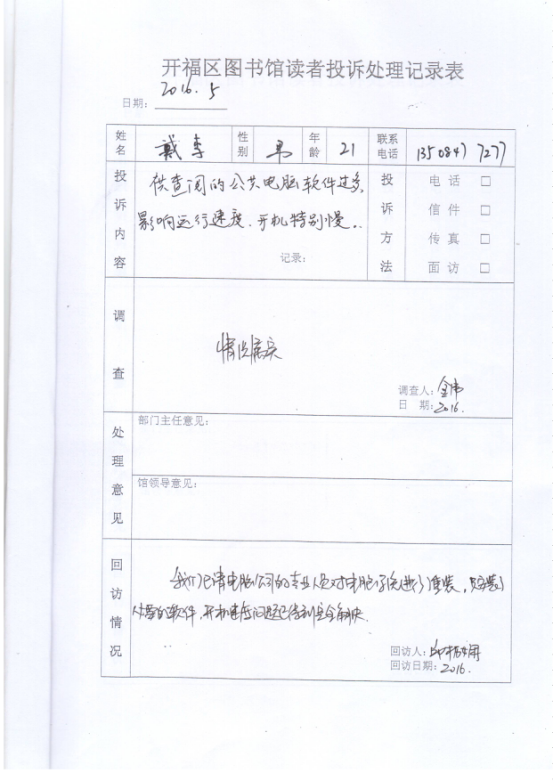 开福区图书馆读者投诉处理记录表
日期：2016.5
姓名 戴李 性别 男 年龄 21 联系电话 13508477277
投诉内容 供查阅的公共电脑软件过多，
影响运行速度.开机特别慢..
记录：
投诉方法
电话 □
信件 □
传真 □
面访 □
调查
情况属实
调查人：金伟
日期：2016.
处理意见
部门主任意见：
馆领导意见：
回访情况
我们已请电脑公司的专业人员对电脑系统进行重装，只安装
必需的软件，开机速度问题已得到完全解决.
回访人：
回访日期：2016.